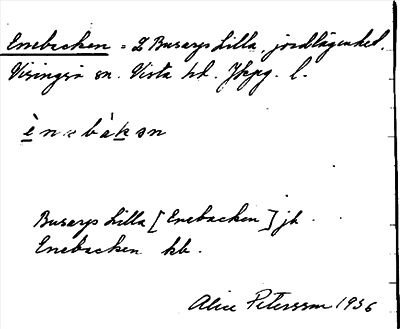 Enebacken = 2 Busarps Lilla, jordlägenhet,
Visingsö sn. Vista hd. Jkpg. l.
Busarps Lilla [Enebacken] jh.
Enebacken kb.
Alice Petersson 1936